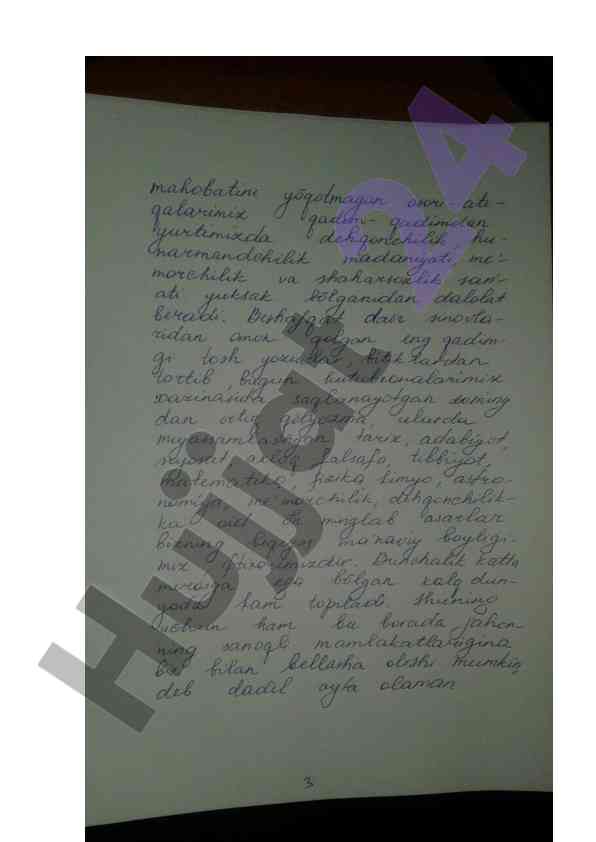 mahobatini yōqotmagan osori-ati-
qalarimix qadim-qadimdan
yurtimizda dehqonchilik, hu-
narmandchilik madaniyati, me'-
morchilik va shaharsozlik san'-
ati yuksak bōlganidan dalolat
beradi. Beshafqat davr sinovla-
ridan omon qolgan eng qadim-
gi tosh yozuvlar, bitiklardan
tortib, bugun kutubxonalarimix
xazinasida saqlanayotgan 20ming
dan ortiq qōlyozma, ularda
mujassamlashgan tarix, adabiyot,
siyosat, axloq, falsafa, tibbiyot,
matematika, fizika kimyo, astro-
nomiya, me'morchilik, dehqonchilik-
ka oid ōn minglab asarlar
bizning beqiyos ma'naviy boyligi-
mix iftixorimizdir. Bunchalik katta
merosga ega bōlgan xalq dun-
yoda kam topiladi. Shuning
uchun ham bu borada jahon-
ning sanoqli mamlakatlarigina
biz bilan bellasha olishi mumkin,
deb dadil ayta olaman
3
Hujjat 24